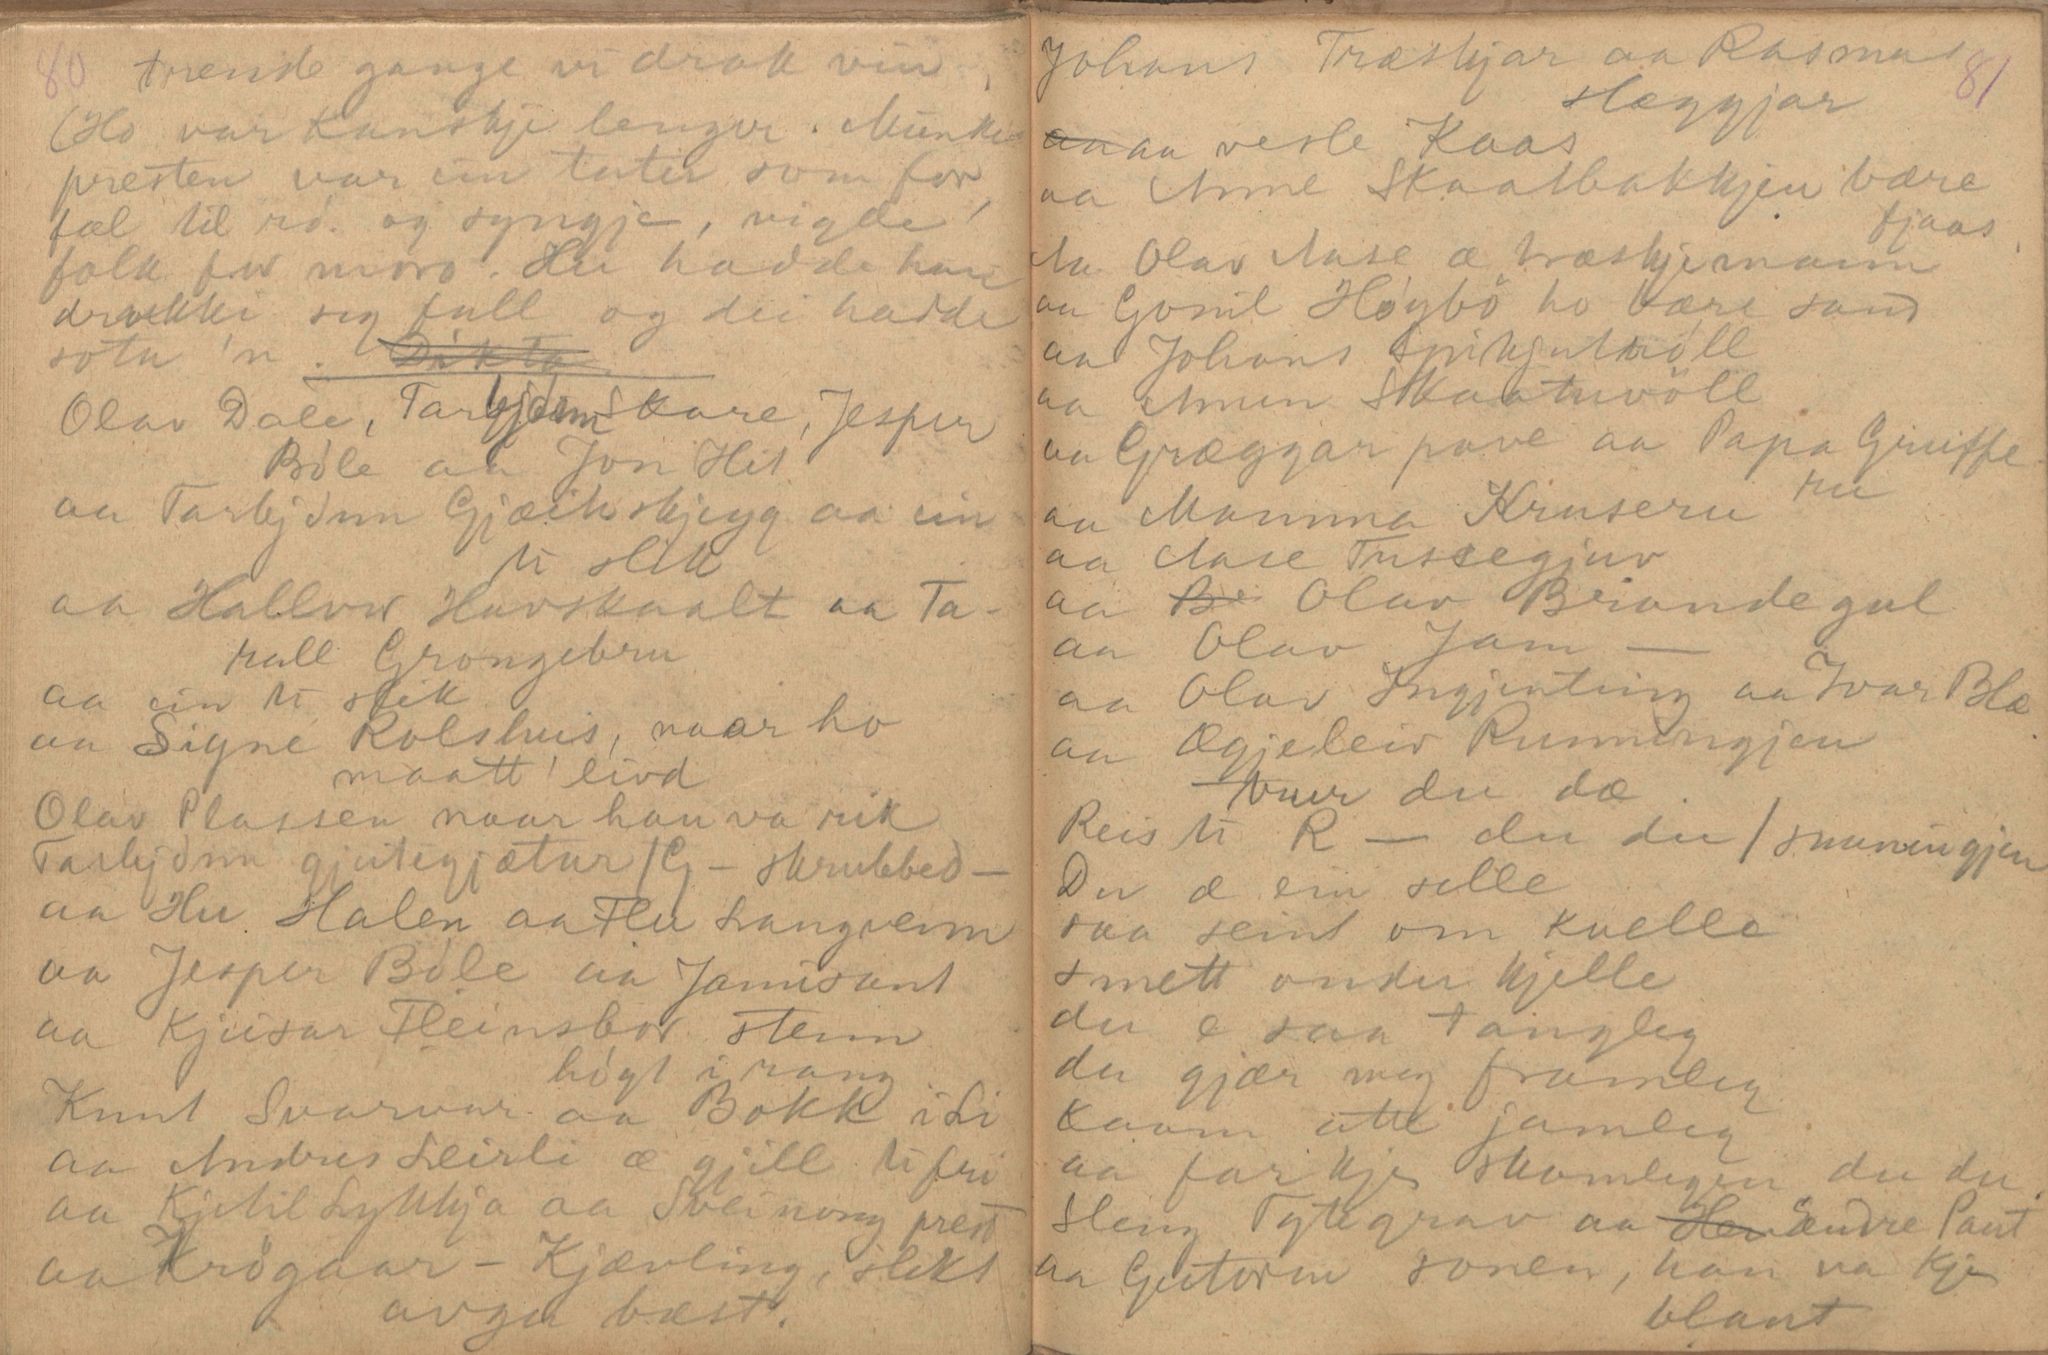 80
trende gange vi drak vin,
(Ho var kanskje lenger. Munke
presten var ein tater som for
fæl til rö og syngje, vigde
folk for moro. Hu hadde han
drukki seg full og dei hadde
sota 'n. Dikta
Olav Dale, Tarbjönn Skare, Jesper
Böle aa Jon Hit
aa Tarbjönn Gjæitskjegg aa ein
ti slik
aa Hallvor Havskaalt aa Ta-
rall Grongebru
aa ein ti slik
aa Signe Rolshus, naar ho
maatt' livd
Olav Plassen naar han va rik
Tarbjönn gjeitegjætur / G - skrubbed -
aa Hu Halen aa Flu Langvenn
aa Jesper Böle aa Jamisant
aa Kjusar Fleinsbor stenn
högt i rang
Knut Svarvar aa Bokk i Li
aa Andres Leirli æ gjill ti fri
aa Kjetil Lykkja aa Sveinong prest
aa Krögaar - Kjævling, slikt
avgu bæst.
81
Johans Træskjar aa Rasmus
Hæggjar
aa aa vesle Kaas
aa Anne Skaatbakkjen bære
fjaas,
Aa Olav Aase æ træskjemann
aa Gonil Höybö ho bære sand
aa Johans
aa Amun Skaatuvöll
aa Græggar pave aa Papa Griuffe
ru
aa Mamma Kruseru
aa Aase Trisegjuv
aa Br Olav Brandegul
aa Olav Jam —
aa Olav Ingjenting aa Ivar Blæ
aa Ægjeleiv Runningjen
bur du dæ.
Reis ti R — du du / snuningjen
Du æ ein selle
saa seint om kvelle
smett onder kjelle
du e saa tangleg
du gjær meg framleg
kaam atte jamleg
aa far kje skamlegen du du.
Sleng Tytegrav aa Hen Sændre Pant
aa Gutorm sonen, han va kje
blant